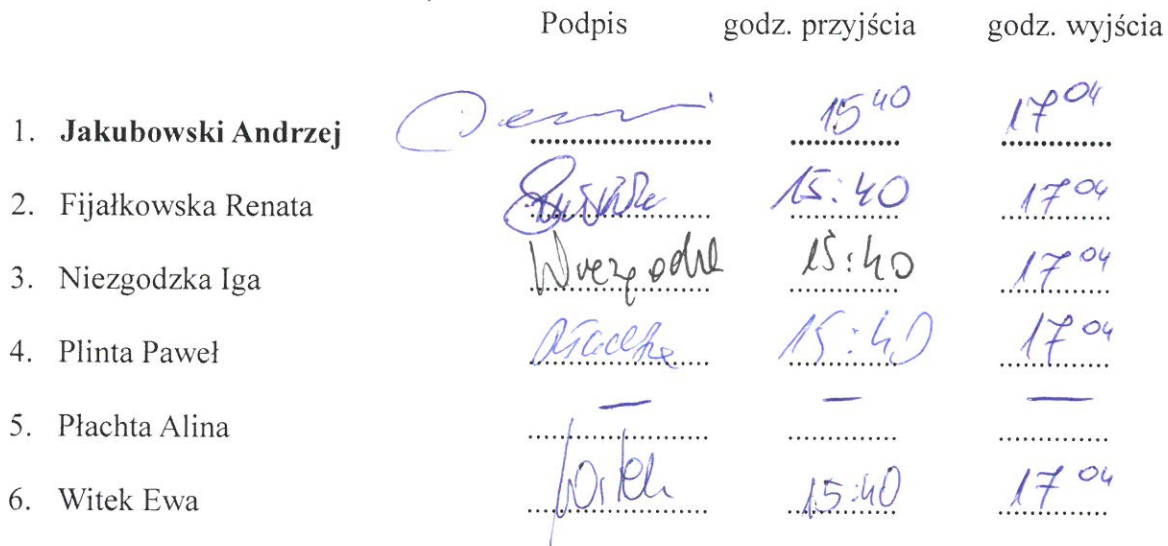 Podpis godz. przyjścia godz. wyjścia
1. Jakubowski Andrzej 15 40 17 04
2. Fijałkowska Renata 15:40 17 04
3. Niezgodzka Iga 15:40 17 04
4. Plinta Paweł 15:40 17 04
5. Płachta Alina — — —
6. Witek Ewa Witek 15:40 17 04